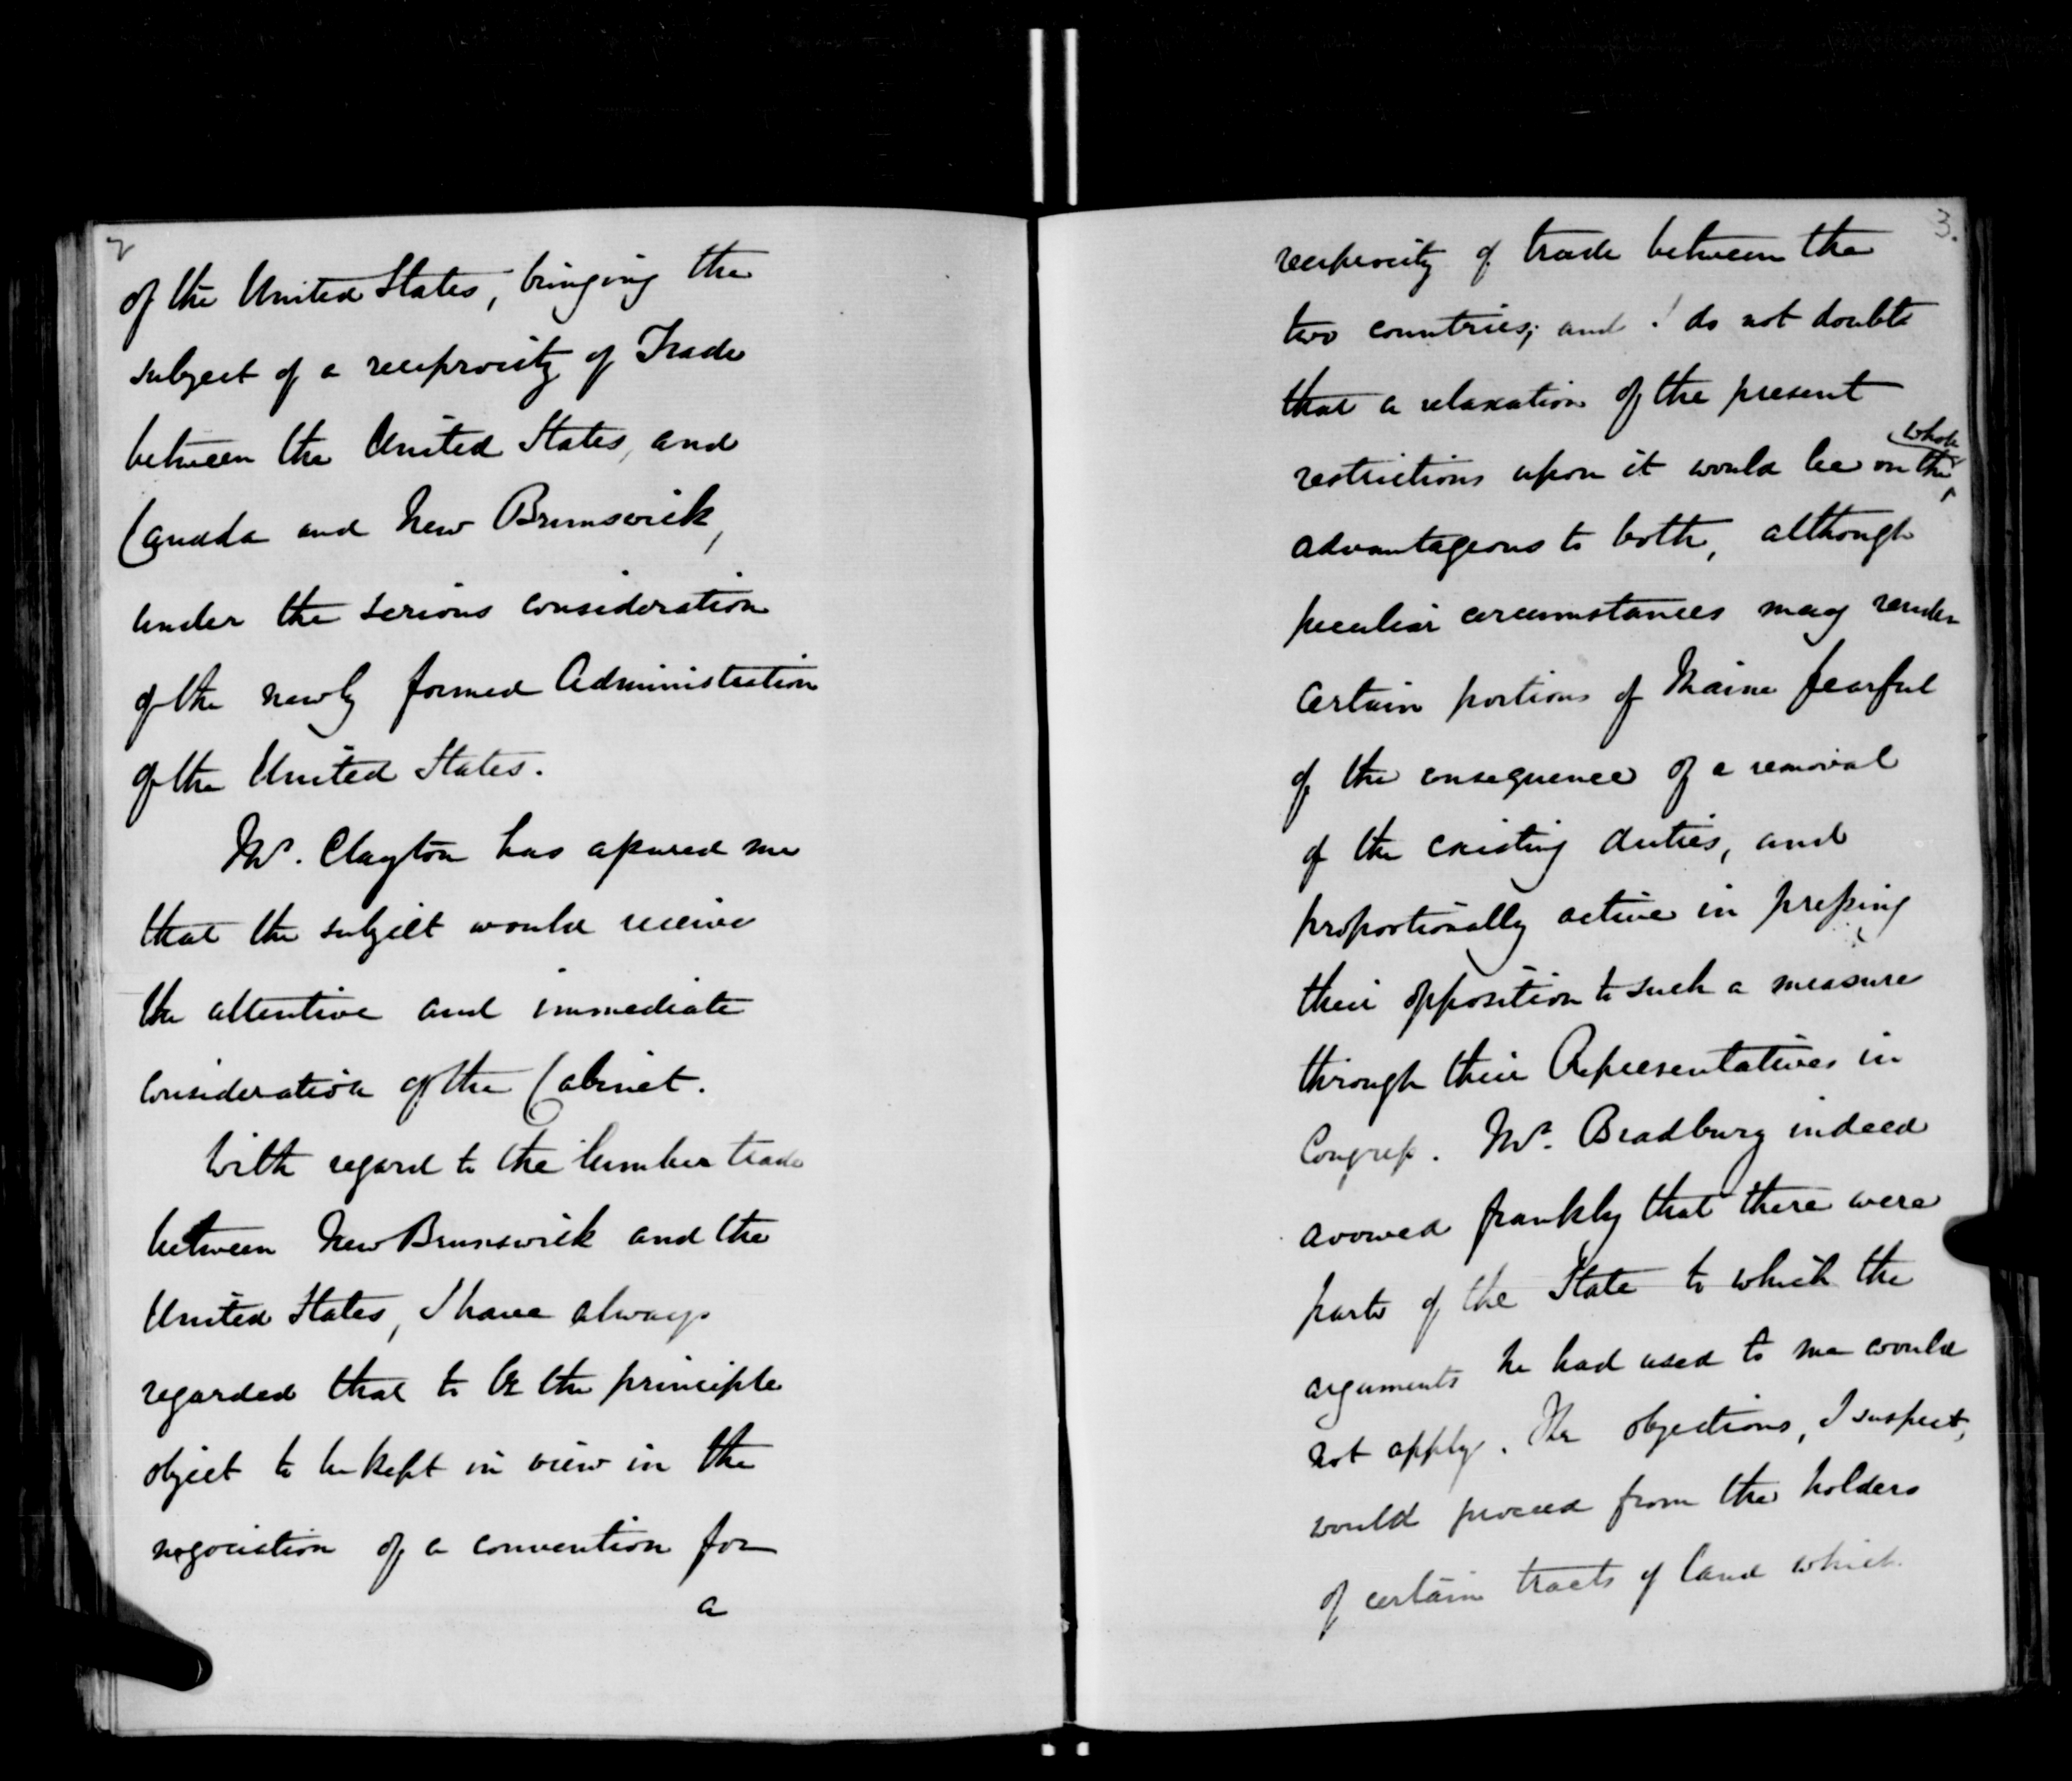 2
of the United States, bringing the
subject of a reciprocity of Trade
between the United States, and
Canada and New Brunswick,
under the serious consideration
of the newly formed Administration
of the United States.
Mr. Clayton has assured me
that the subject would receive
the attentive and immediate
consideration of the Cabinet.
With regard to the lumber trade
between New Brunswick and the
United States, I have always
regarded that to be the principle
object to be kept in view in the
negociation of a convention for
a
3.
reciprocity of trade between the
two countries; and I do not doubt
that a relaxation of the present
whole
restrictions upon it would be on the
advantageous to both, although
peculiar circumstances may render
certain portions of Maine fearful
of the consequence of a removal
of the existing duties, and
proportionally active in pressing
their opposition to such a measure
through their Representatives in
Congress. Mr. Bradbury indeed
avowed frankly that there were
parts of the State to which the
arguments he had used to me would
not apply. The objections, I suspect,
would proceed from the holders
of certain tracts of land which